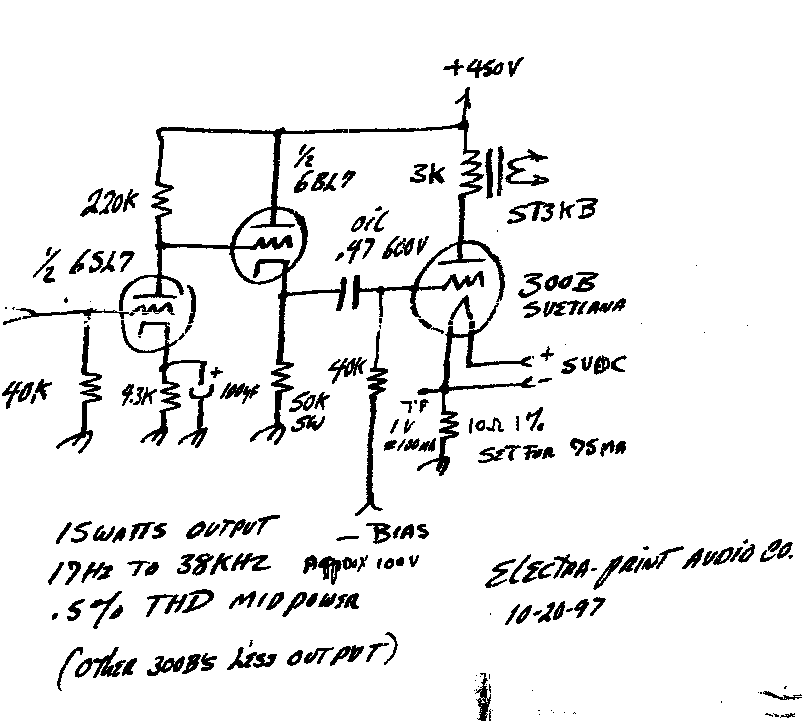 +450V
1/2
6BL7
220K
3K
ST3KB
OIL
.47 600V
1/2 6SL7
300B
SVETLANA
40K
+
100µf
50K
5W
40K
+ 5VDC
-
TP
1V
=100MA
10Ω 1%
SET FOR 75MA
- BIAS
APPROX 100V
15 WATTS OUTPUT
17HZ TO 38KHZ
.5% THD MIDPOWER
(OTHER 300B'S LESS OUTPUT)
ELECTRA-PRINT AUDIO CO.
10-20-97